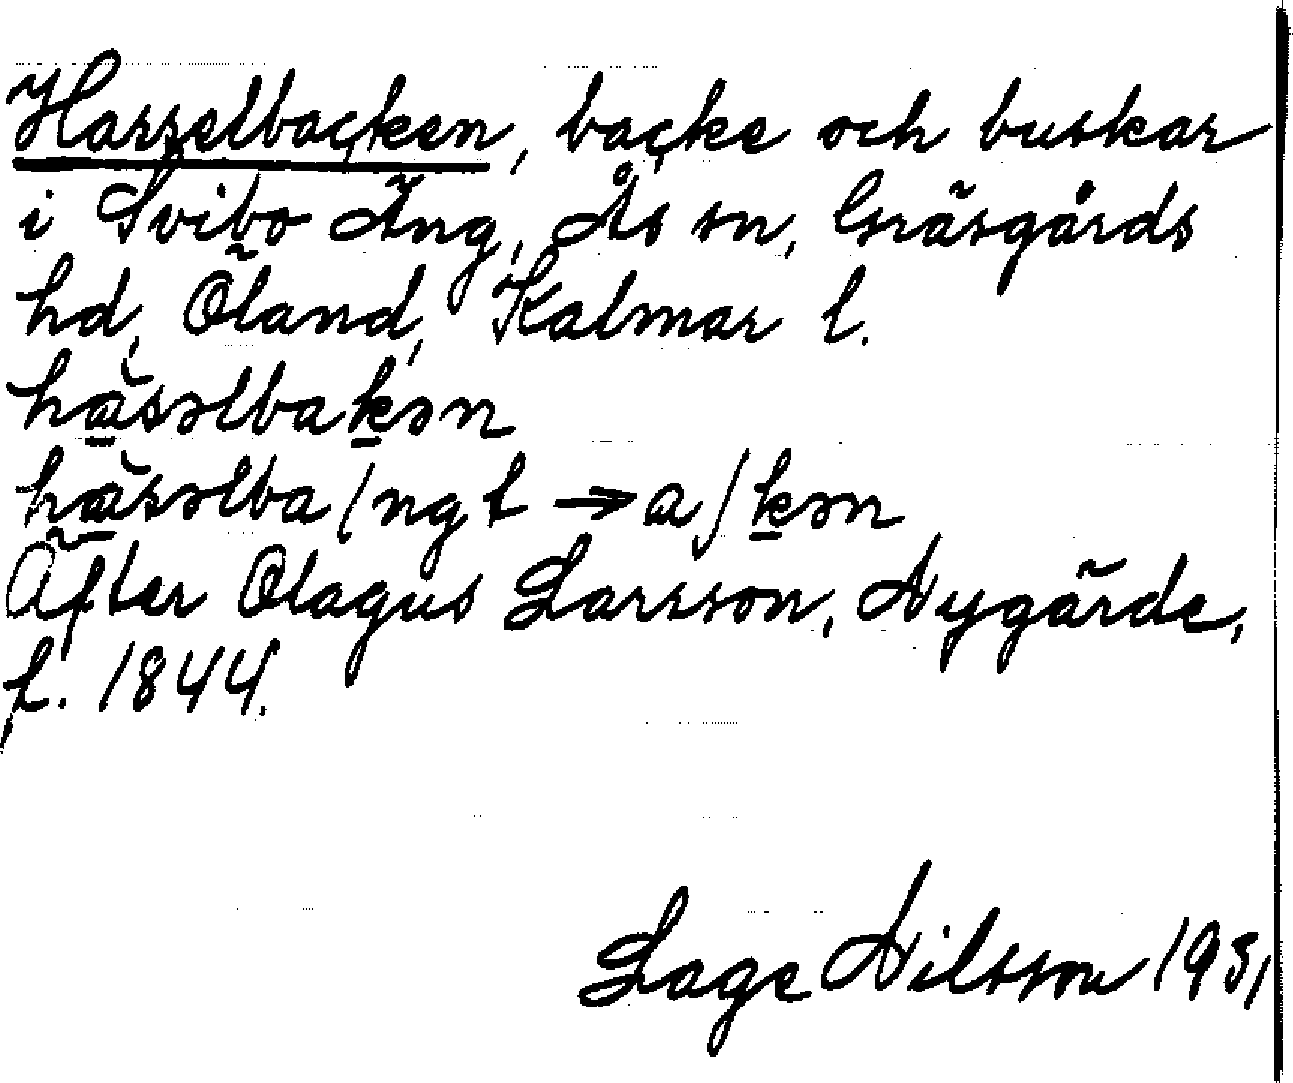 Hasselbacken, backe och buskar
i Svibo Äng, Ås sn, Gräsgårds
hd, Öland, Kalmar l.
hàsəlbakən
hàsəlba/ngt → a/kən
Äfter Olagus Larsson, Nygärde,
f. 1844.
Lage Nilsson 1931